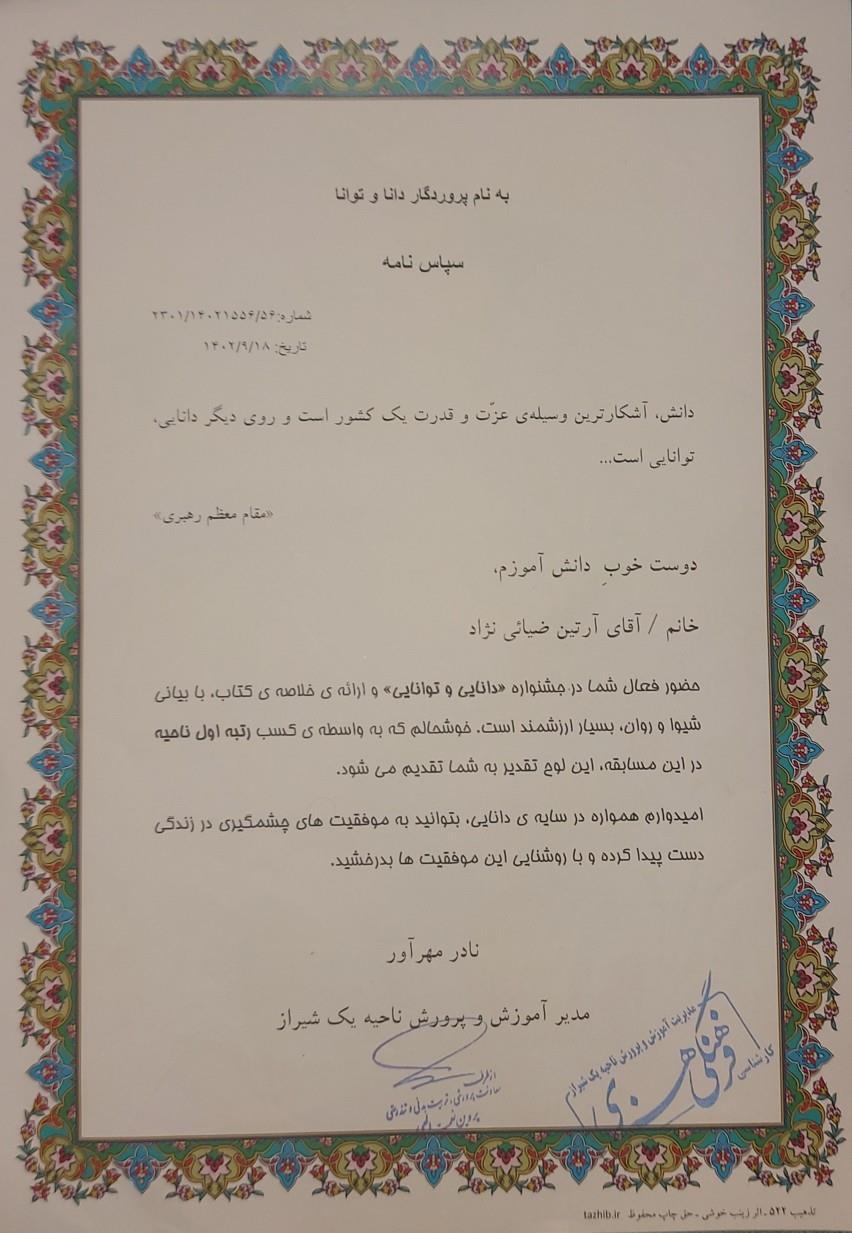 به نام پروردگار دانا و توانا
سپاس نامه
شماره:۲۳۰۱/۱۴۰۲۱۵۵۶/۵۶
تاریخ: ۱۴۰۲/۹/۱۸
دانش، آشکارترین وسیله‌ی عزّت و قدرت یک کشور است و روی دیگر دانایی،
توانایی است...
«مقام معظم رهبری»
دوست خوبِ دانش آموزم،
خانم / آقای آرتین ضیائی نژاد
حضور فعال شما در جشنواره «دانایی و توانایی» و ارائه ی خلاصه ی کتاب، با بیانی
شیوا و روان، بسیار ارزشمند است. خوشحالم که به واسطه ی کسب رتبه اول ناحیه
در این مسابقه، این لوح تقدیر به شما تقدیم می شود.
امیدوارم همواره در سایه ی دانایی، بتوانید به موفقیت های چشمگیری در زندگی
دست پیدا کرده و با روشنایی این موفقیت ها بدرخشید.
نادر مهرآور
مدیر آموزش و پرورش ناحیه یک شیراز
از طرف
معاونت پرورشی، تربیت بدنی و تندرستی
پروین
مدیریت آموزش و پرورش ناحیه یک شیراز
کارشناسی
فرهنگی هنری
تذهیب ۵۲۲ - اثر زینب خوشی - حق چاپ محفوظ tazhib.ir